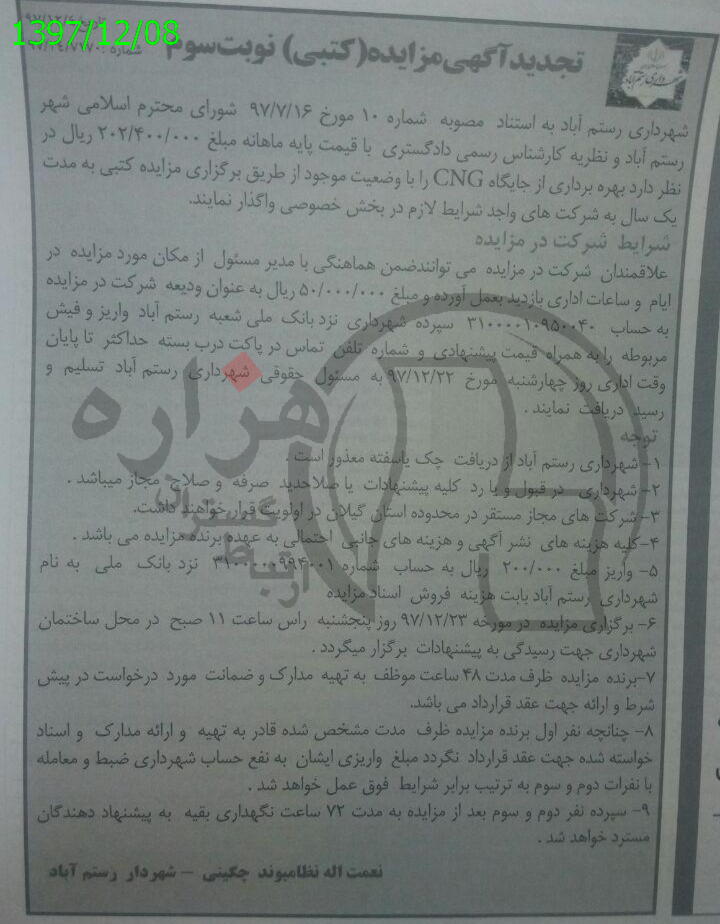 1397/12/08
تجدید آگهی مزایده (کتبی) نوبت سوم
شهرداری رستم آباد
شهرداری رستم آباد به استناد مصوبه شماره ۱۰ مورخ ۹۷/۷/۱۶ شورای محترم اسلامی شهر
رستم آباد و نظریه کارشناس رسمی دادگستری با قیمت پایه ماهانه مبلغ ۲۰۲/۴۰۰/۰۰۰ ریال در
نظر دارد بهره برداری از جایگاه CNG را با وضعیت موجود از طریق برگزاری مزایده کتبی به مدت
یک سال به شرکت های واجد شرایط لازم در بخش خصوصی واگذار نمایند.
شرایط شرکت در مزایده
علاقمندان شرکت در مزایده می توانندضمن هماهنگی با مدیر مسئول از مکان مورد مزایده در
ایام و ساعات اداری بازدید بعمل آورده و مبلغ ۵۰/۰۰۰/۰۰۰ ریال به عنوان ودیعه شرکت در مزایده
به حساب ۳۱۰۰۰۰۱۰۹۵۰۰۴۰ سپرده شهرداری نزد بانک ملی شعبه رستم آباد واریز و فیش
مربوطه را به همراه قیمت پیشنهادی و شماره تلفن تماس در پاکت درب بسته حداکثر تا پایان
وقت اداری روز چهارشنبه مورخ ۹۷/۱۲/۲۲ به مسئول حقوقی شهرداری رستم آباد تسلیم و
رسید دریافت نمایند.
توجه
۱- شهرداری رستم آباد از دریافت چک یاسفته معذور است.
۲- شهرداری در قبول و یا رد کلیه پیشنهادات با صلاحدید صرفه و صلاح مجاز میباشد.
۳- شرکت های مجاز مستقر در محدوده استان گیلان در اولویت قرار خواهند داشت.
۴- کلیه هزینه های نشر آگهی و هزینه های جانبی احتمالی به عهده برنده مزایده می باشد.
۵- واریز مبلغ ۲۰۰/۰۰۰ ریال به حساب شماره ۳۱۰۰۰۰۰۹۹۴۰۰۱ نزد بانک ملی به نام
شهرداری رستم آباد بابت هزینه فروش اسناد مزایده
۶- برگزاری مزایده در مورخه ۹۷/۱۲/۲۳ روز پنجشنبه راس ساعت ۱۱ صبح در محل ساختمان
شهرداری جهت رسیدگی به پیشنهادات برگزار میگردد.
۷-برنده مزایده ظرف مدت ۴۸ ساعت موظف به تهیه مدارک و ضمانت مورد درخواست در پیش
شرط و ارائه جهت عقد قرارداد می باشد.
۸- چنانچه نفر اول برنده مزایده ظرف مدت مشخص شده قادر به تهیه و ارائه مدارک و اسناد
خواسته شده جهت عقد قرارداد نگردد مبلغ واریزی ایشان به نفع حساب شهرداری ضبط و معامله
با نفرات دوم و سوم به ترتیب برابر شرایط فوق عمل خواهد شد.
۹- سپرده نفر دوم و سوم بعد از مزایده به مدت ۷۲ ساعت نگهداری بقیه به پیشنهاد دهندگان
مسترد خواهد شد.
نعمت اله نظامیوند چگینی – شهردار رستم آباد
هزاره
گستران
ارتباط